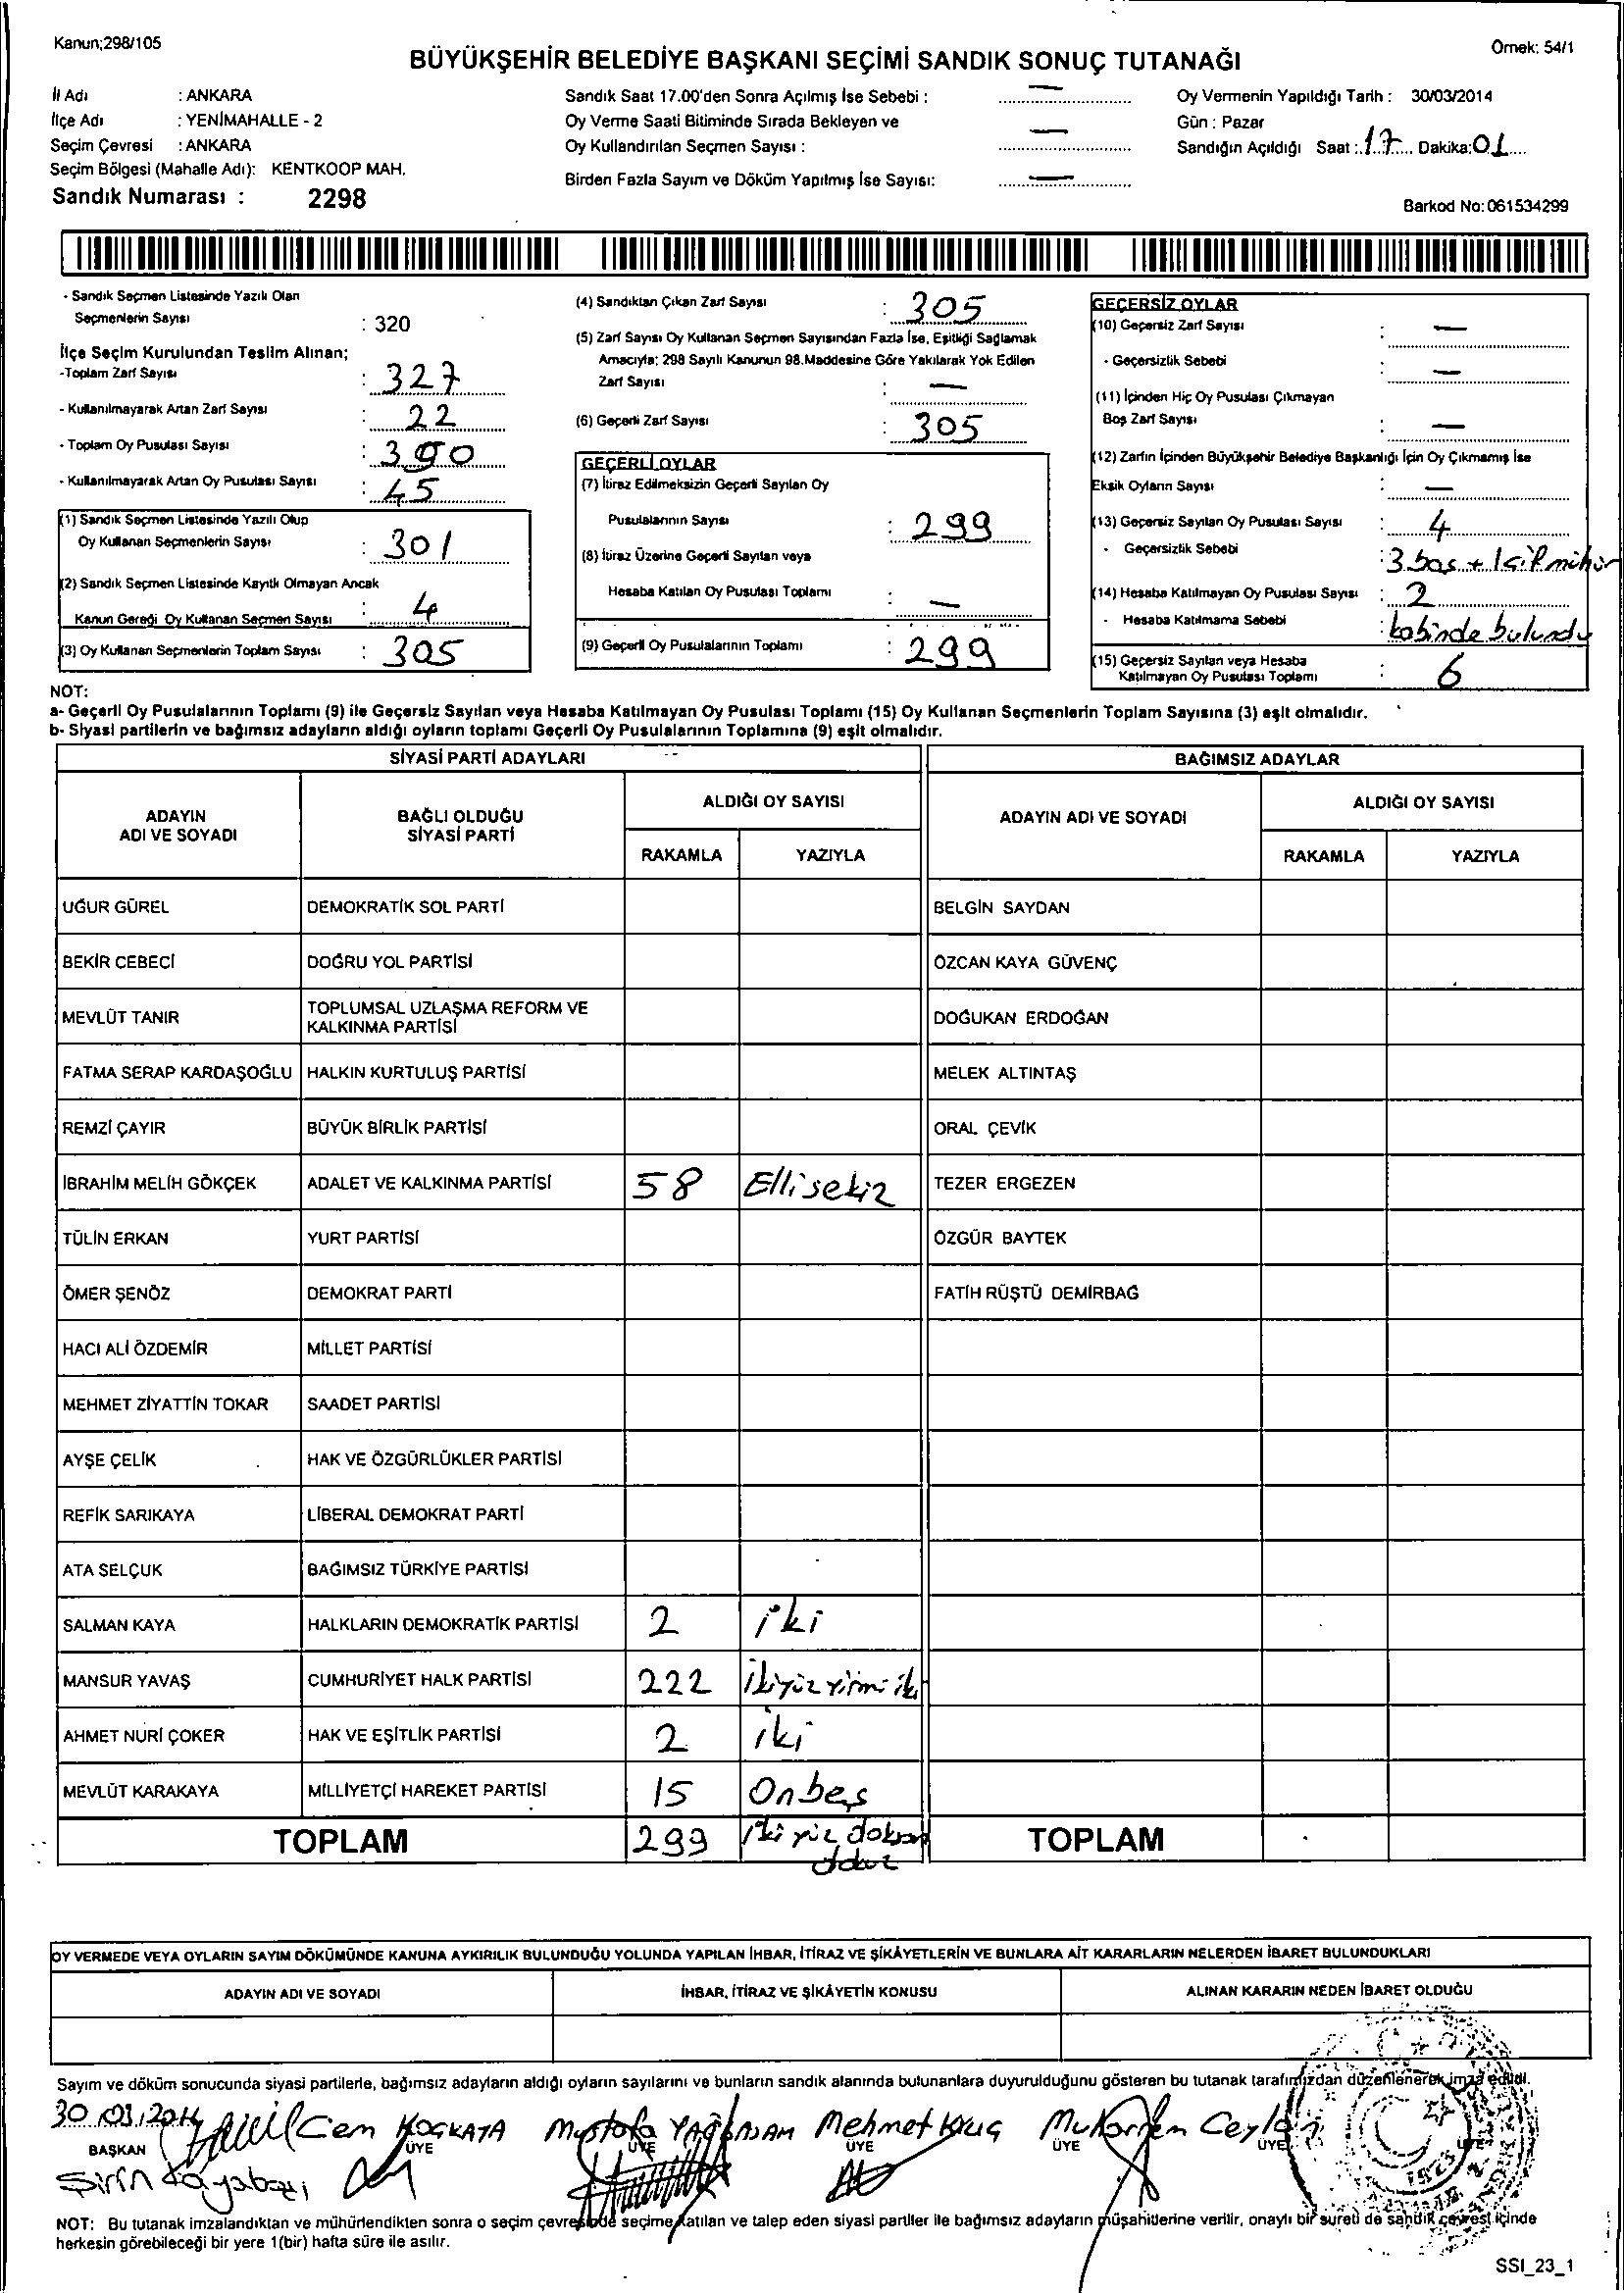 Kanun;298/105
Örnek: 54/1
BÜYÜKŞEHİR BELEDİYE BAŞKANI SEÇİMİ SANDIK SONUÇ TUTANAĞI
İl Adı : ANKARA
İlçe Adı : YENİMAHALLE - 2
Seçim Çevresi : ANKARA
Seçim Bölgesi (Mahalle Adı): KENTKOOP MAH.
Sandık Numarası : 2298
Sandık Saat 17.00'den Sonra Açılmış İse Sebebi : —
Oy Verme Saati Bitiminde Sırada Bekleyen ve
Oy Kullandırılan Seçmen Sayısı : —
Birden Fazla Sayım ve Döküm Yapılmış İse Sayısı: —
Oy Vermenin Yapıldığı Tarih : 30/03/2014
Gün : Pazar
Sandığın Açıldığı Saat : 17 Dakika: 01
Barkod No: 061534299
- Sandık Seçmen Listesinde Yazılı Olan
Seçmenlerin Sayısı : 320
İlçe Seçim Kurulundan Teslim Alınan;
-Toplam Zarf Sayısı : 327
- Kullanılmayarak Artan Zarf Sayısı : 22
- Toplam Oy Pusulası Sayısı : 390
- Kullanılmayarak Artan Oy Pusulası Sayısı : 45
(1) Sandık Seçmen Listesinde Yazılı Olup
Oy Kullanan Seçmenlerin Sayısı : 301
(2) Sandık Seçmen Listesinde Kayıtlı Olmayan Ancak
Kanun Gereği Oy Kullanan Seçmen Sayısı : 4
(3) Oy Kullanan Seçmenlerin Toplam Sayısı : 305
(4) Sandıktan Çıkan Zarf Sayısı : 305
(5) Zarf Sayısı Oy Kullanan Seçmen Sayısından Fazla İse, Eşitliği Sağlamak
Amacıyla; 298 Sayılı Kanunun 98.Maddesine Göre Yakılarak Yok Edilen
Zarf Sayısı : —
(6) Geçerli Zarf Sayısı : 305
GEÇERLİ OYLAR
(7) İtiraz Edilmeksizin Geçerli Sayılan Oy
Pusulalarının Sayısı : 299
(8) İtiraz Üzerine Geçerli Sayılan veya
Hesaba Katılan Oy Pusulası Toplamı : —
(9) Geçerli Oy Pusulalarının Toplamı : 299
GEÇERSİZ OYLAR
(10) Geçersiz Zarf Sayısı : —
- Geçersizlik Sebebi : —
(11) İçinden Hiç Oy Pusulası Çıkmayan
Boş Zarf Sayısı : —
(12) Zarfın İçinden Büyükşehir Belediye Başkanlığı İçin Oy Çıkmamış İse
Eksik Oyların Sayısı : —
(13) Geçersiz Sayılan Oy Pusulası Sayısı : 4
- Geçersizlik Sebebi : 3 boş + 1 çift mühür
(14) Hesaba Katılmayan Oy Pusulası Sayısı : 2
- Hesaba Katılmama Sebebi : kabinde bulundu
(15) Geçersiz Sayılan veya Hesaba
Katılmayan Oy Pusulası Toplamı : 6
NOT:
a- Geçerli Oy Pusulalarının Toplamı (9) ile Geçersiz Sayılan veya Hesaba Katılmayan Oy Pusulası Toplamı (15) Oy Kullanan Seçmenlerin Toplam Sayısına (3) eşit olmalıdır.
b- Siyasi partilerin ve bağımsız adayların aldığı oyların toplamı Geçerli Oy Pusulalarının Toplamına (9) eşit olmalıdır.
SİYASİ PARTİ ADAYLARI BAĞIMSIZ ADAYLAR
ADAYIN ADI VE SOYADI BAĞLI OLDUĞU SİYASİ PARTİ ALDIĞI OY SAYISI ADAYIN ADI VE SOYADI ALDIĞI OY SAYISI
RAKAMLA YAZIYLA RAKAMLA YAZIYLA
UĞUR GÜREL DEMOKRATİK SOL PARTİ BELGİN SAYDAN
BEKİR CEBECİ DOĞRU YOL PARTİSİ ÖZCAN KAYA GÜVENÇ
MEVLÜT TANIR TOPLUMSAL UZLAŞMA REFORM VE KALKINMA PARTİSİ DOĞUKAN ERDOĞAN
FATMA SERAP KARDAŞOĞLU HALKIN KURTULUŞ PARTİSİ MELEK ALTINTAŞ
REMZİ ÇAYIR BÜYÜK BİRLİK PARTİSİ ORAL ÇEVİK
İBRAHİM MELİH GÖKÇEK ADALET VE KALKINMA PARTİSİ 58 Ellisekiz TEZER ERGEZEN
TÜLİN ERKAN YURT PARTİSİ ÖZGÜR BAYTEK
ÖMER ŞENÖZ DEMOKRAT PARTİ FATİH RÜŞTÜ DEMİRBAĞ
HACI ALİ ÖZDEMİR MİLLET PARTİSİ
MEHMET ZİYATTİN TOKAR SAADET PARTİSİ
AYŞE ÇELİK HAK VE ÖZGÜRLÜKLER PARTİSİ
REFİK SARIKAYA LİBERAL DEMOKRAT PARTİ
ATA SELÇUK BAĞIMSIZ TÜRKİYE PARTİSİ
SALMAN KAYA HALKLARIN DEMOKRATİK PARTİSİ 2 iki
MANSUR YAVAŞ CUMHURİYET HALK PARTİSİ 222 ikiyüz yirmi iki
AHMET NURİ ÇOKER HAK VE EŞİTLİK PARTİSİ 2 iki
MEVLÜT KARAKAYA MİLLİYETÇİ HAREKET PARTİSİ 15 Onbeş
TOPLAM 299 iki yüz doksan dokuz TOPLAM
OY VERMEDE VEYA OYLARIN SAYIM DÖKÜMÜNDE KANUNA AYKIRILIK BULUNDUĞU YOLUNDA YAPILAN İHBAR, İTİRAZ VE ŞİKÂYETLERİN VE BUNLARA AİT KARARLARIN NELERDEN İBARET BULUNDUKLARI
ADAYIN ADI VE SOYADI İHBAR, İTİRAZ VE ŞİKÂYETİN KONUSU ALINAN KARARIN NEDEN İBARET OLDUĞU
Sayım ve döküm sonucunda siyasi partilerle, bağımsız adayların aldığı oyların sayılarını ve bunların sandık alanında bulunanlara duyurulduğunu gösteren bu tutanak tarafımızdan düzenlenerek imza edildi.
30.03.2014 Cem Mustafa YAĞBASAN Mehmet KILIÇ Mukerrem Ceylan
BAŞKAN ÜYE ÜYE ÜYE ÜYE ÜYE ÜYE
Şirin
NOT: Bu tutanak imzalandıktan ve mühürlendikten sonra o seçim çevresinde seçime katılan ve talep eden siyasi partiler ile bağımsız adayların müşahitlerine verilir, onaylı bir sureti de sandık çevresi içinde
herkesin görebileceği bir yere 1(bir) hafta süre ile asılır.
SSI_23_1